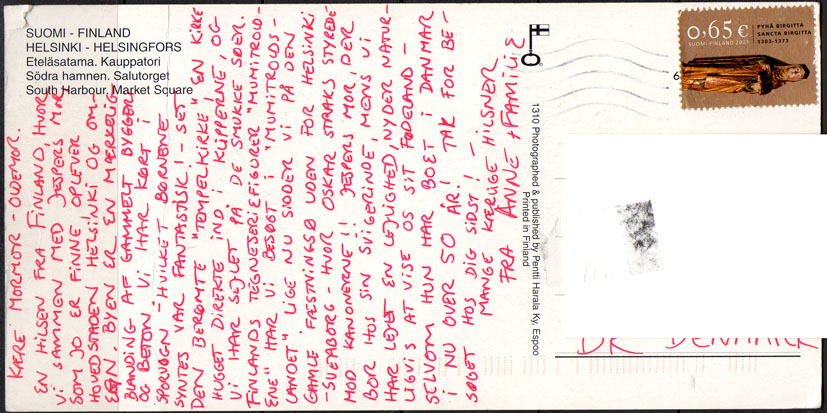 SUOMI - FINLAND
HELSINKI - HELSINGFORS
Eteläsatama. Kauppatori
Södra hamnen. Salutorget
South Harbour. Market Square
0,65 €
PYHÄ BIRGITTA
SANCTA BIRGITTA
1303-1373
SUOMI FINLAND 2003
1310 Photographed & published by Pentti Harala Ky, Espoo
Printed in Finland
KÆRE MORMOR - OLDEMOR.
EN HILSEN FRA FINLAND, HVOR
VI SAMMEN MED JESPERS MOR
SOM JO ER FINNE OPLEVER
HOVEDSTADEN HELSINKI OG OM-
EGN. BYEN ER EN MÆRKELIG
BLANDING AF GAMMELT BYGGERI
OG BETON. VI HAR KØRT I
SPORVOGN - HVILKET BØRNENE
SYNTES VAR FANTASTISK! - SET
DEN BERØMTE "TEMPELKIRKE" EN KIRKE
HUGGET DIREKTE IND I KLIPPERNE, OG
VI HAR SEJLET PÅ DE SMUKKE SØER.
FINLANDS TEGNESERIEFIGURER "MUMITROLD-
ENE" HAR VI BESØGT I "MUMITROLDS-
LANDET" LIGE NU SIDDER VI PÅ DEN
GAMLE FÆSTNINGSØ UDEN FOR HELSINKI
- SVEABORG - HVOR OSKAR STRAKS STYREDE
MOD KANONERNE!! JESPERS MOR, DER
BOR HOS SIN SVIGERINDE, MENS VI
HAR LEJET EN LEJLIGHED, NYDER NATUR-
LIGVIS AT VISE OS SIT FØDELAND -
SELVOM HUN HAR BOET I DANMARK
I NU OVER 50 ÅR! TAK FOR BE-
SØGET HOS DIG SIDST!
MANGE KÆRLIGE HILSNER
FRA ANNE + FAMILIE
DK DENMARK